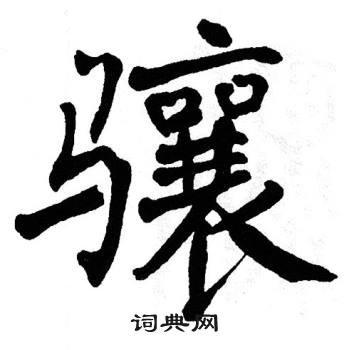 骧
词典网